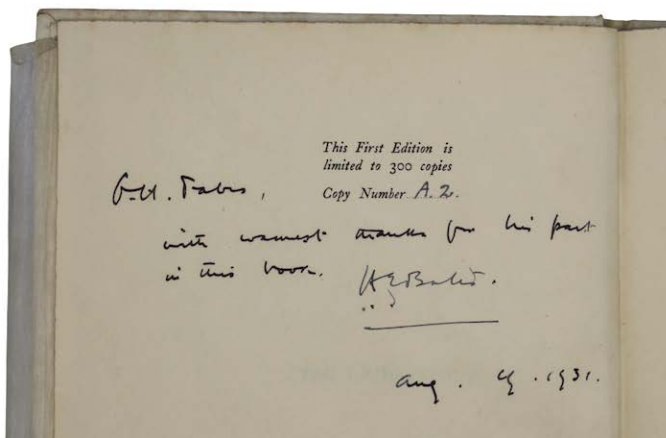 This First Edition is
limited to 300 copies
Copy Number A.2.
G. H. Fabes,
with warmest thanks for his part
in this book. H E Bates.
Aug. 19. 1931.